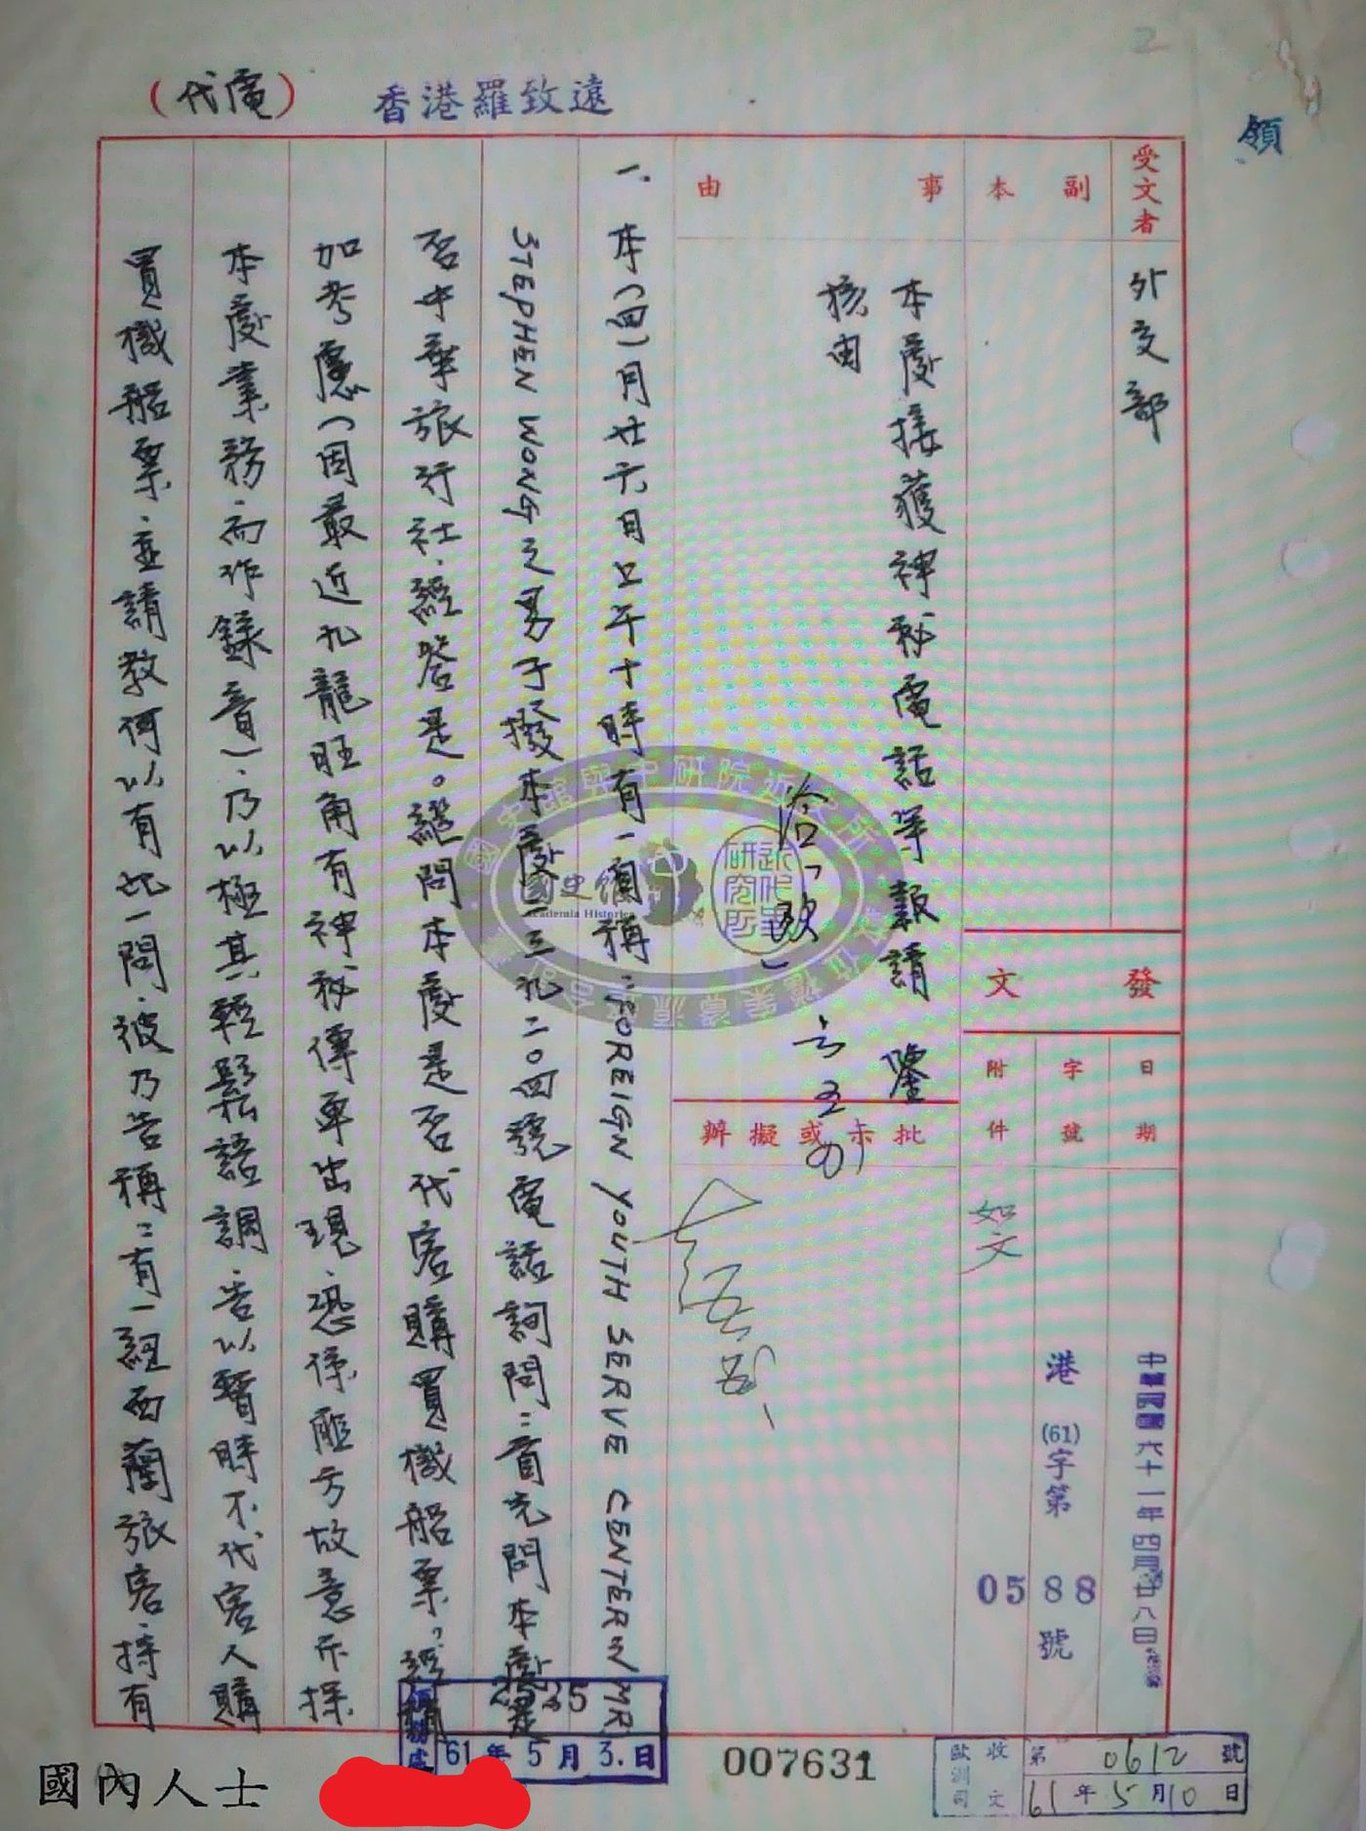 2
領
香港羅致遠
(代電)
受文者
外交部
副本
發文
日期
中華民國六十一年四月廿八日
字號
港(61)字第0588號
附件
如文
事由
本處接獲神秘電話等報請 鑒
核由
批示或擬辦
一、本(四)月廿六日上午十時有一自稱"FOREIGN YOUTH SERVE CENTER之MR
STEPHEN WONG之男子撥本處 三九二〇四號電話詢問：首先問本處是
否中華旅行社，經答是。繼問本處是否代客購買機船票，經稍
加考慮(因最近九龍旺角有神秘傳單出現，恐係匪方故意示探
本處業務，而作錄音)，乃以極其輕鬆語調，告以暫時不代客人購
買機船票，並請教何以有此一問，彼乃告稱：有一紐西蘭旅客，持有
2525
61年5月3日
007631
歐洲司收文
第0612號
61年5月10日
國史館與中研院近史所
國史館
Academia Historica
近代史研究所
國內人士